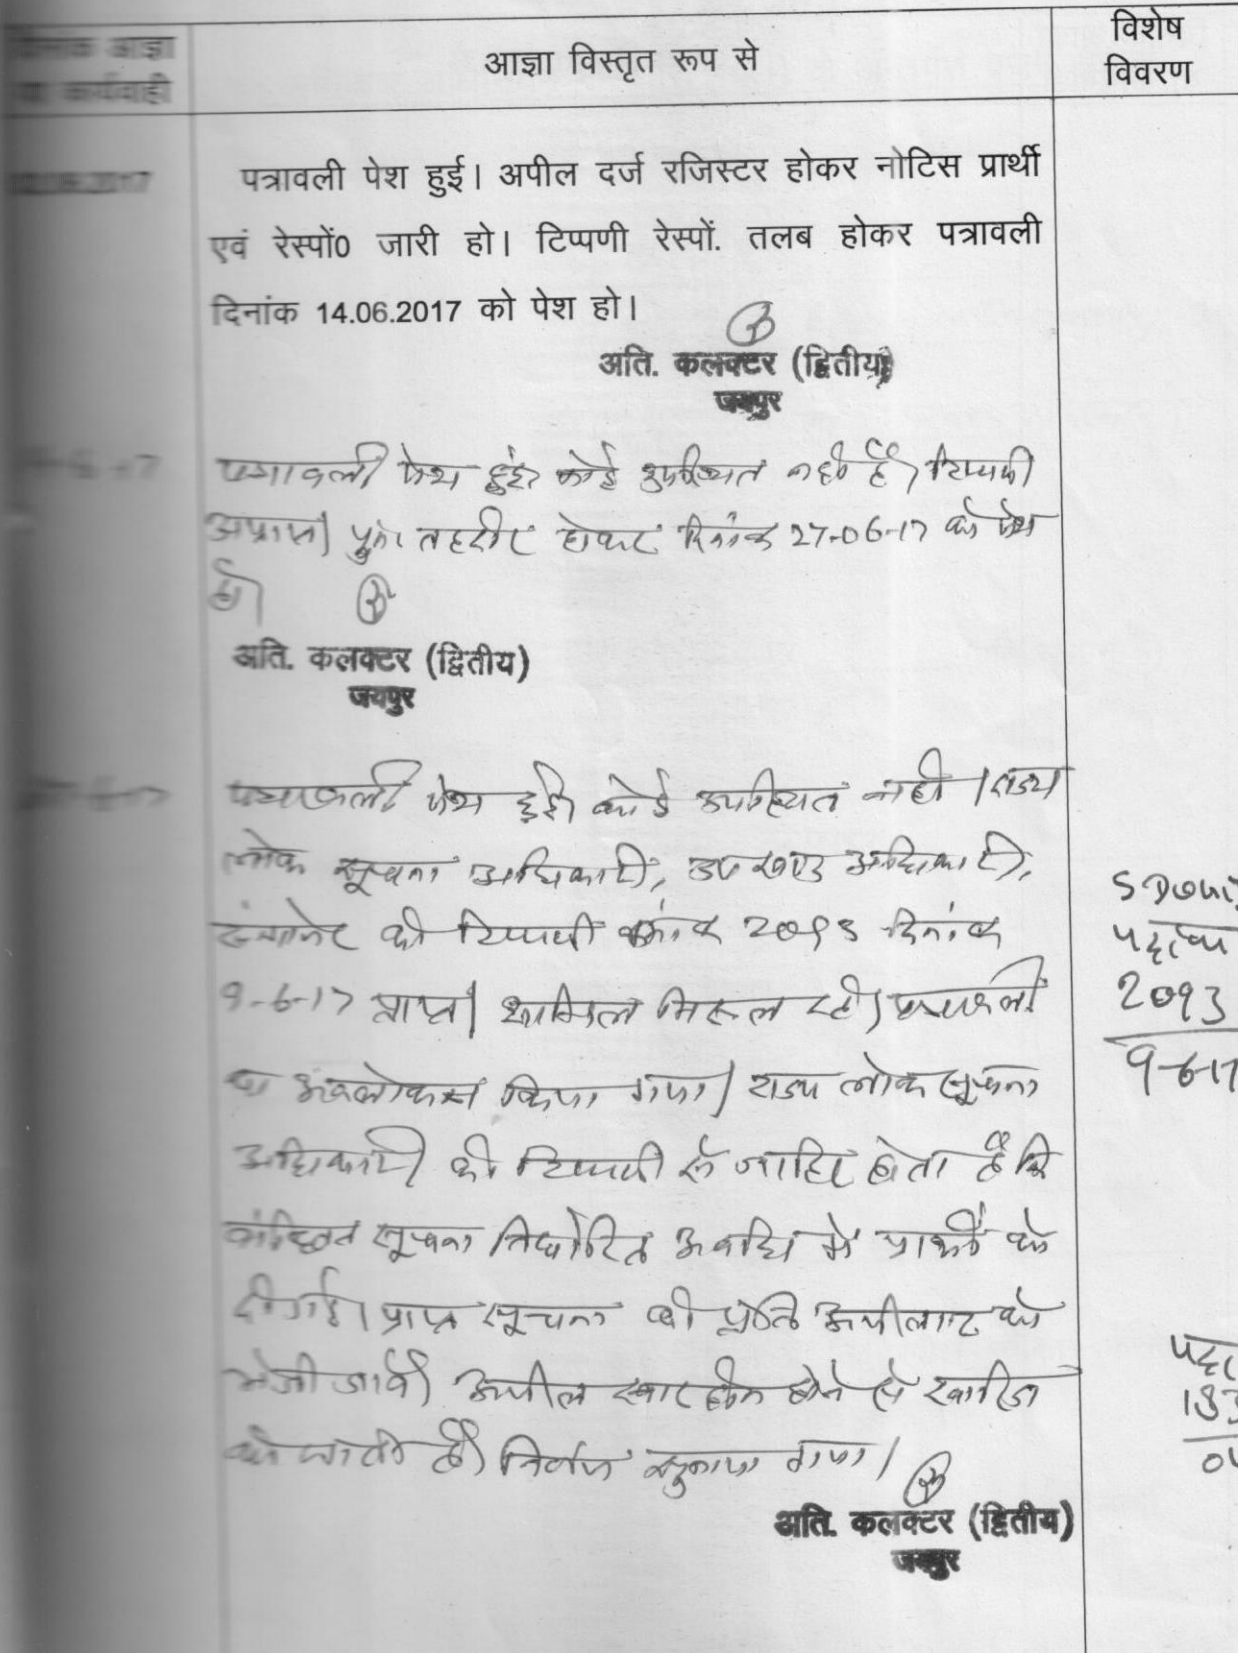 दिनांक आज्ञा
या कार्यवाही
आज्ञा विस्तृत रूप से
विशेष
विवरण
पत्रावली पेश हुई। अपील दर्ज रजिस्टर होकर नोटिस प्रार्थी
एवं रेस्पों0 जारी हो। टिप्पणी रेस्पों. तलब होकर पत्रावली
दिनांक 14.06.2017 को पेश हो।
अति. कलक्टर (द्वितीय)
जयपुर
पत्रावली पेश हुई। कोई उपस्थित नही है। टिप्पणी
अप्राप्त। पुनः तहरीर होकर दिनांक 27-06-17 को पेश
हो।
अति. कलक्टर (द्वितीय)
जयपुर
पत्रावली पेश हुई। कोई उपस्थित नही। राज्य
लोक सूचना अधिकारी, उप खण्ड अधिकारी,
सांगानेर की टिप्पणी क्रमांक 2093 दिनांक
9-6-17 प्राप्त। शामिल मिसल रहे। पत्रावली
का अवलोकन किया गया। राज्य लोक सूचना
अधिकारी की टिप्पणी से जाहिर होता है कि
वांछित सूचना निर्धारित अवधि में प्रार्थी को
दी गई। प्राप्त सूचना की प्रति अपीलार्ट को
भेजी जावे। अपील सारहीन होने से खारिज
की जाती है। निर्णय सुनाया गया।
अति. कलक्टर (द्वितीय)
जयपुर
पत्रांक
2093
9-6-17